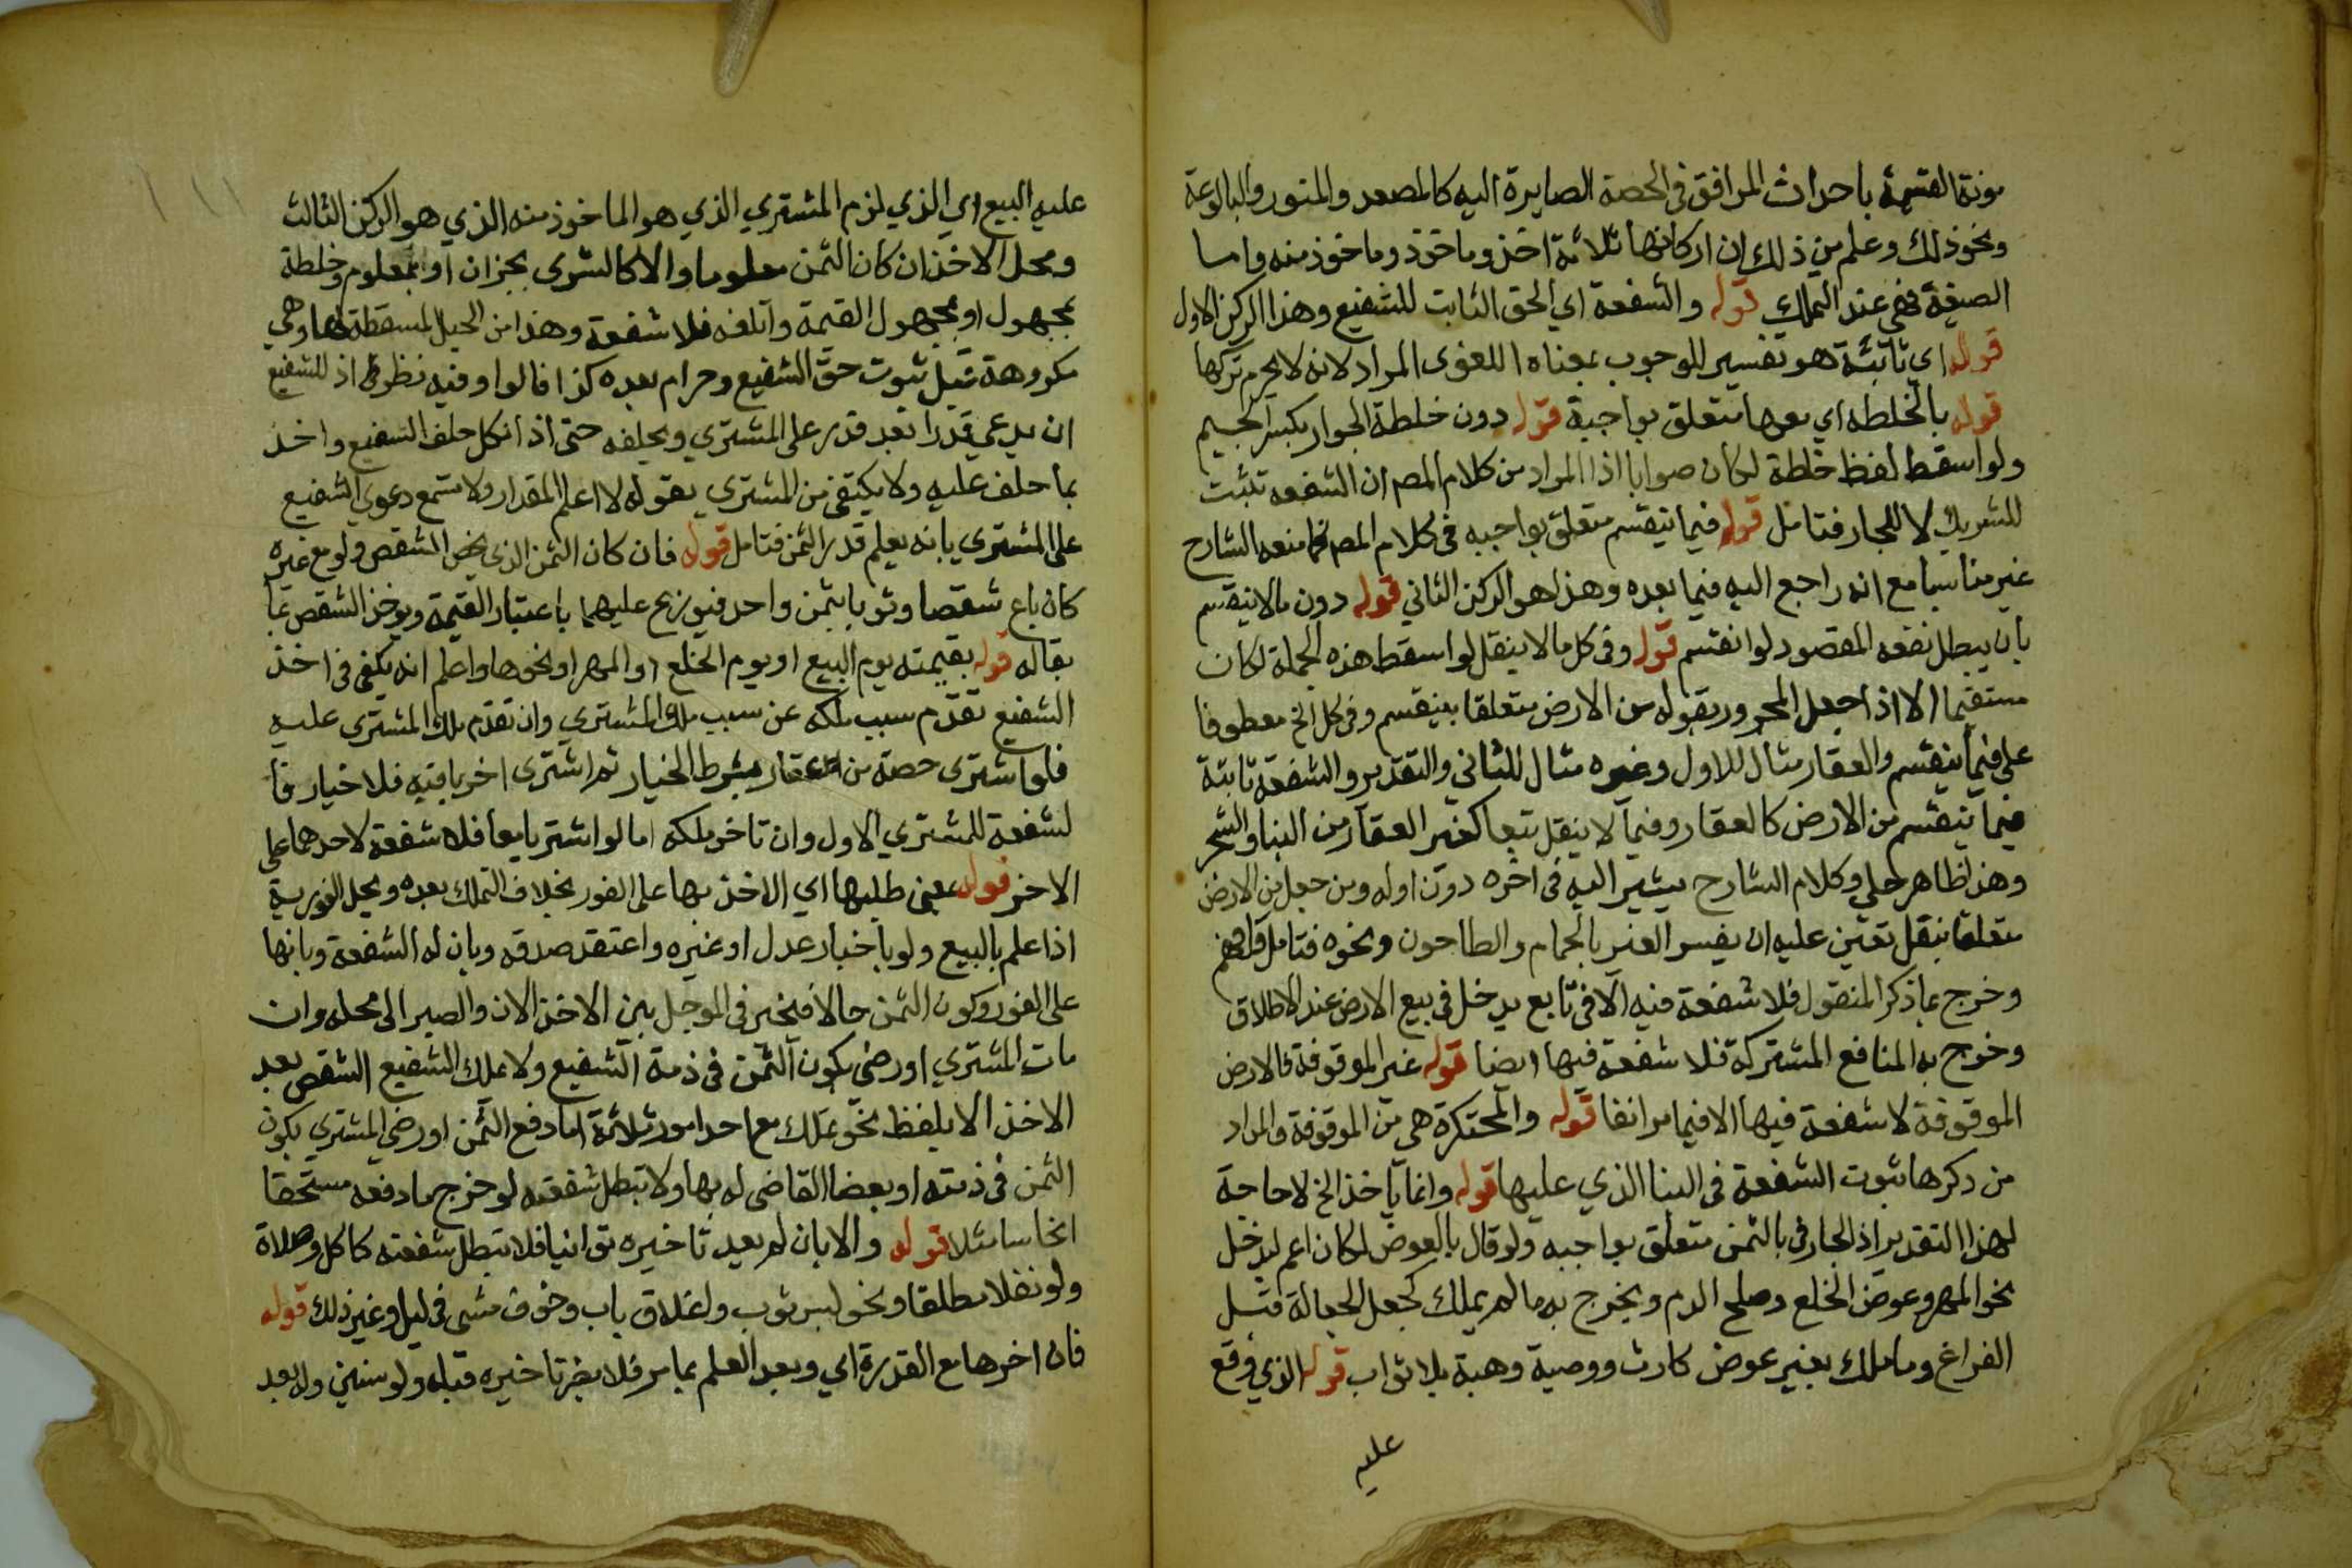 مونة القسمة باحداث المرافق في الحصة الصايرة اليه كالمصعد والمنور والبالوعة
ونحو ذلك وعلم من ذلك ان اركانها ثلاثة اخذ وماخوذ وماخوذ منه واما
الصيغة فهي عند التملك قوله والشفعة اي الحق الثابت للشفيع وهذا الركن الاول
قوله اي ثابتة هو تفسير للوجوب بمعناه اللغوى المراد لانه لا يحرم تركها
قوله بالخلطه اي بعدها متعلق بواجبة قوله دون خلطة الجوار بكسر الجيم
ولو اسقط لفظ خلطة لكان صوابا اذ المراد من كلام المص ان الشفعه تثبت
للشريك لا للجار فتامل قوله فيما ينقسم متعلق بواجبه في كلام المص فما منعه الشارح
غير مناسب مع انه راجع اليه فيما بعده وهذا هو الركن الثاني قوله دون مالا ينقسم
بان يبطل نفعه المقصود لو انقسم قوله وفي كل مالا ينقل لو اسقط هذه الجملة لكان
مستقيما الا اذا جعل المجرور بقوله من الارض متعلقا بينقسم وفي كل الخ معطوفا
على فيما ينقسم والعقار مثال للاول وغيره مثال للثاني والتقدير والشفعة ثابتة
فيما ينقسم من الارض كالعقار وفيما لا ينقل تبعا كغير العقار من البنا والشجر
وهذا ظاهر جلي وكلام الشارح يشير اليه في اخره دون اوله ومن جعل من الارض
متعلقا بينقل تعين عليه ان يفسر الغير بالحمام والطاحون ونحوه فتامل وافهم
وخرج بما ذكر المنقول فلا شفعة فيه الا في تابع يدخل في بيع الارض عند الاطلاق
وخرج به المنافع المشتركة فلا شفعة فيها ايضا قوله غير الموقوفة فالارض
الموقوفة لا شفعة فيها الا فيما مر انفا قوله والمحتكرة هي من الموقوفة والمراد
من ذكرها ثبوت الشفعة في البنا الذي عليها قوله وانما ياخذ الخ لا حاجة
لهذا التقدير اذ الجار في بالثمن متعلق بواجبه ولو قال بالعوض لكان اعم ليدخل
نحو المهر وعوض الخلع وصلح الدم ويخرج به ما لم يملك كجعل الجعالة قبل
الفراغ وما ملك بغير عوض كارث ووصية وهبة بلا ثواب قوله الذي وقع
عليه
عليه البيع اي الذي لزم المشتري الذي هو الماخوذ منه الذي هو الركن الثالث
ومحل الاخذ ان كان الثمن معلوما والا كالشرى بجزاف او بمعلوم وخلطة
بمجهول او بمجهول القيمة واتلفه فلا شفعة وهذا من الحيل المسقطة لها وهي
مكروهة قبل ثبوت حق الشفيع وحرام بعده كذا قالوا وفيه نظر اذ للشفيع
ان يدعي قدرا بعد قدر على المشتري ويحلفه حتى اذا نكل حلف الشفيع واخذ
بما حلف عليه ولا يكتفي من المشتري بقوله لا اعلم المقدار ولا تسمع دعوى الشفيع
على المشتري بانه يعلم قدر الثمن فتامل قوله فان كان الثمن الذي يخص الشقص ولو مع غيره
كان باع شقصا وثوبا بثمن واحد فيوزع عليهما باعتبار القيمة ويوخذ الشقص بما
يقابله قوله بقيمته يوم البيع او يوم الخلع او المهر او نحوها واعلم انه يكفي في اخذ
الشفيع تقدم سبب ملكه عن سبب ملك المشتري وان تقدم ملك المشتري عليه
فلو اشترى حصة من العقار بشرط الخيار ثم اشترى اخر باقيه فلا خيار فا
لشفعة للمشتري الاول وان تاخر ملكه اما لو اشتريا معا فلا شفعة لاحدهما على
الاخر قوله يعني طلبها اي الاخذ بها على الفور بخلاف التملك بعده ومحل الفورية
اذا علم بالبيع ولو باخبار عدل او غيره واعتقد صدقه وبان له الشفعة وبانها
على الفور وكون الثمن حالا فيخير في الموجل بين الاخذ الان والصبر الى محله وان
مات المشتري او رضى بكون الثمن في ذمة الشفيع ولا يملك الشفيع الشقص بعد
الاخذ الا بلفظ نحو تملك مع احد امور ثلاثة اما دفع الثمن او رضى المشتري بكون
الثمن في ذمته او بقضا القاضى له بها ولا تبطل شفعته لو خرج ما دفعه مستحقا
انحاسا مثلا قوله والا بان لم يعد تاخيره توانيا فلا تبطل شفعته كاكل وصلاة
ولو نفلا مطلقا ونحو لبس ثوب واغلاق باب وخوف مشى في ليل وغير ذلك قوله
فان اخرها مع القدرة اي وبعد العلم بما مر فلا يضر تاخيره قبله ولو سنين وله بعد